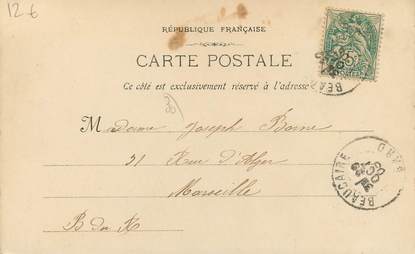 12 €
RÉPUBLIQUE FRANÇAISE
CARTE POSTALE
Ce côté est exclusivement réservé à l'adresse
Madame Joseph Borne
31 Rue d'Alger
Marseille
B du R
BEAUCAIRE
GARD